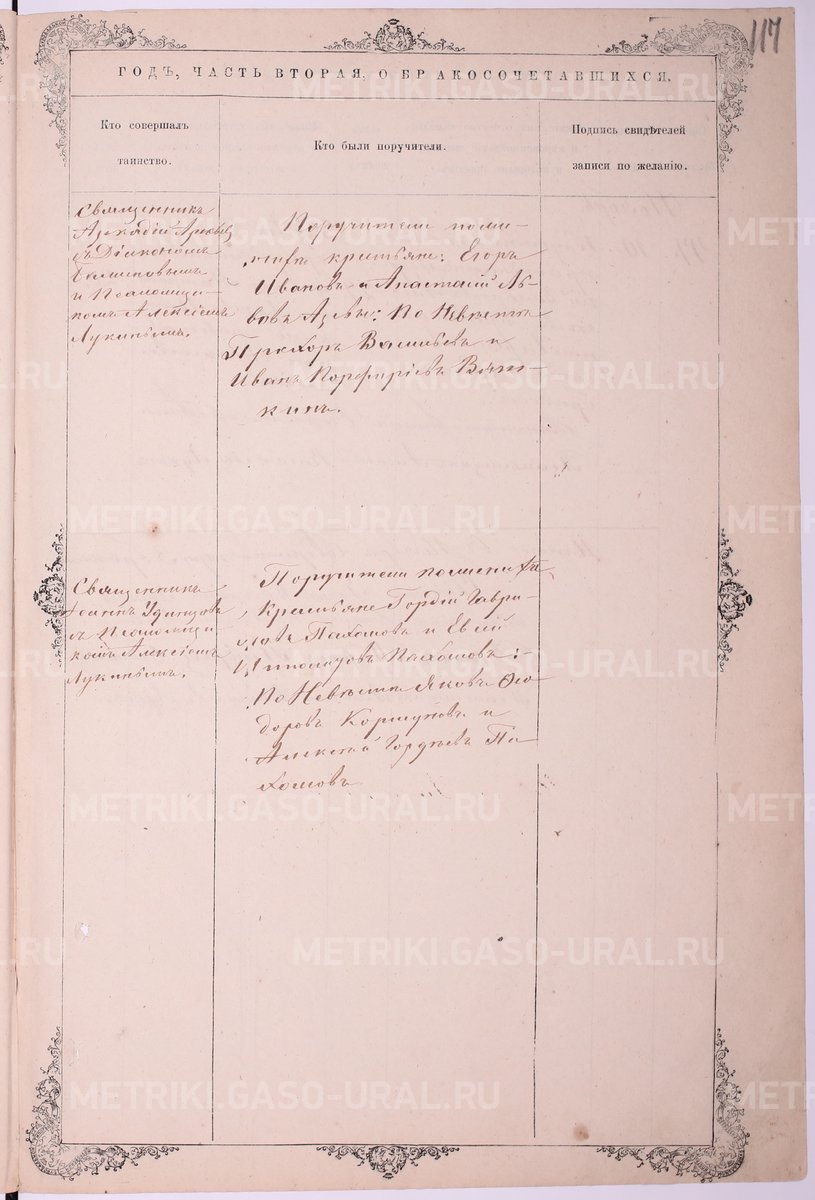 117
ГОДЪ, ЧАСТЬ ВТОРАЯ, О БРАКОСОЧЕТАВШИХСЯ.
Кто совершалъ
таинство.
Кто были поручители.
Подпись свидѣтелей
записи по желанію.
Священникъ
Аркадій
съ Діакономъ
и Псаломщи-
комъ Алексіемъ
Лукинымъ.
Поручители по же-
нихѣ крестьяне: Егоръ
Ивановъ и Анастасій Ль-
вовъ По Невѣстѣ
Прохоръ Васильевъ и
Иванъ Порфирьевъ Вят-
кинъ.
Священникъ
Іоаннъ Удинцовъ
съ Псаломщи
комъ Алексіемъ
Лукинымъ.
Поручители по жених
Крестьяне Гордій Гаври-
ловъ Пахомовъ и Евсій
Ипполитовъ Пахомовъ:
По Невѣстѣ Яковъ Ѳео
доровъ Коршуновъ и
Алексѣй Гордѣевъ Па
хомовъ
METRIKI.GASO-URAL.RU